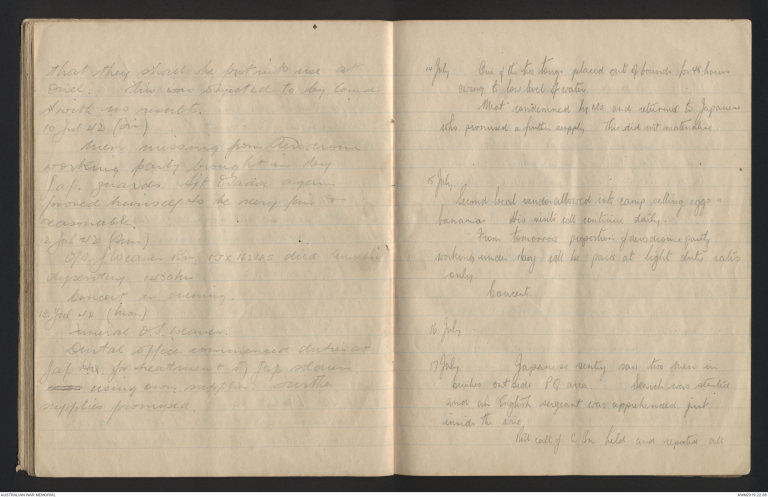 that they should be put into use at
once. This was objected to by
with no results.
10 Jul 42 (Fri)
Men missing from Aerodrome
working party brought in by
Jap. guards. Sgt again
proved himself to be very fair &
reasonable.
12 Jul 42 (Sun)
O/S. J. Weaver RAN. died Amoebic
dysentery 1430 hrs.
Concert in evening.
13 Jul 42 (Mon)
Funeral O.S. Weaver.
Dental officer commenced duties at
Jap HQ. for treatment of Jap soldiers
using own supplies. Further
supplies promised.
14 July One of the two tongs placed out of bounds for 48 hours
owing to low level of water.
Meat condemned by MO and returned to Japanese
who promised a further supply. This did not materialise.
15 July
Second local vendor allowed into camp selling eggs &
bananas. His visits will continue daily.
From tomorrow proportion of aerodrome party
working under will be paid at light duty rates
only.
Concert.
16 July
17 July Japanese sentry saw two men in
bushes outside area. Search was started
and an English sergeant was apprehended just
inside the wire.
Roll call of held and reported all
AUSTRALIAN WAR MEMORIAL